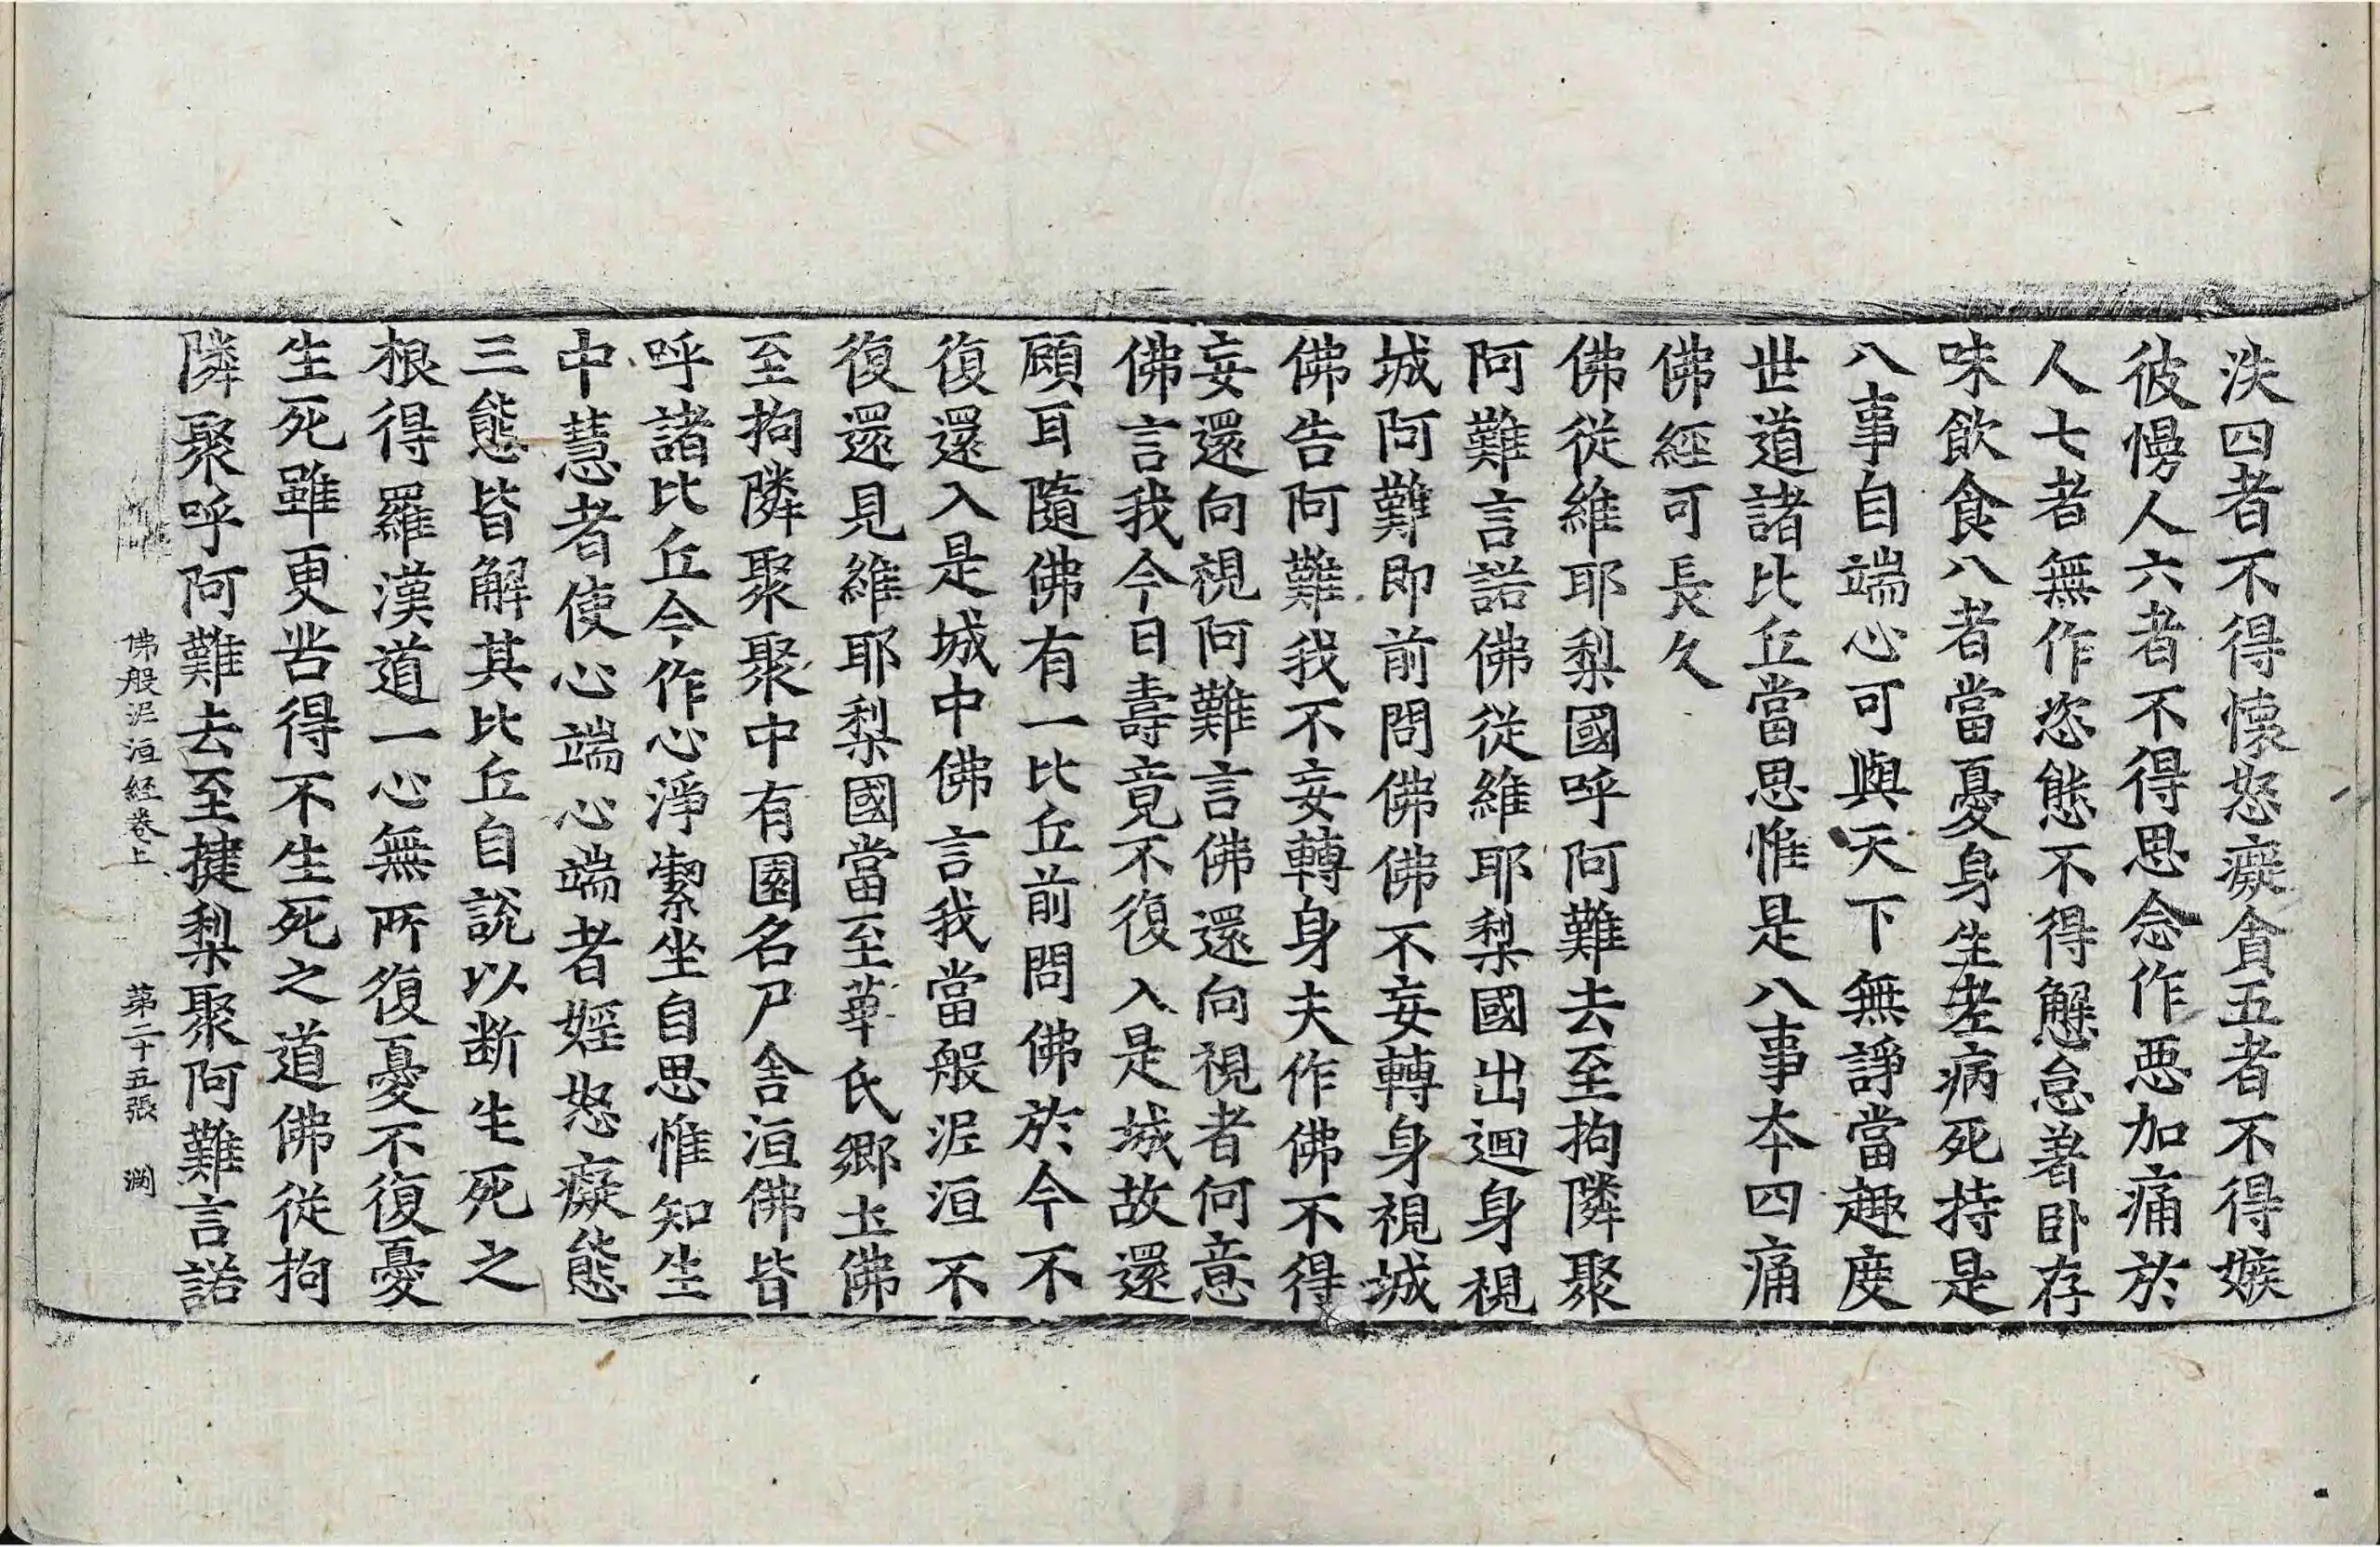 泆四者不得懷怒癡貪五者不得嫉
彼慢人六者不得思念作惡加痛於
人七者無作恣態不得懈怠著卧存
味飲食八者當憂身生老病死持是
八事自端心可與天下無諍當趣度
世道諸比丘當思惟是八事本四痛
佛經可長久
佛從維耶梨國呼阿難去至拘隣聚
阿難言諾佛從維耶梨國出迴身視
城阿難即前問佛佛不妄轉身視城
佛告阿難我不妄轉身夫作佛不得
妄還向視阿難言佛還向視者何意
佛言我今日壽竟不復入是城故還
顧耳隨佛有一比丘前問佛於今不
復還入是城中佛言我當般泥洹不
復還見維耶梨國當至華氏鄉土佛
至拘隣聚聚中有園名尸舍洹佛皆
呼諸比丘令作心淨潔坐自思惟知生
中慧者使心端心端者婬怒癡態
三態皆解其比丘自說以断生死之
根得羅漢道一心無所復憂不復憂
生死雖更苦得不生死之道佛從拘
隣聚呼阿難去至揵梨聚阿難言諾
佛般泥洹経卷上 第二十五張 潤